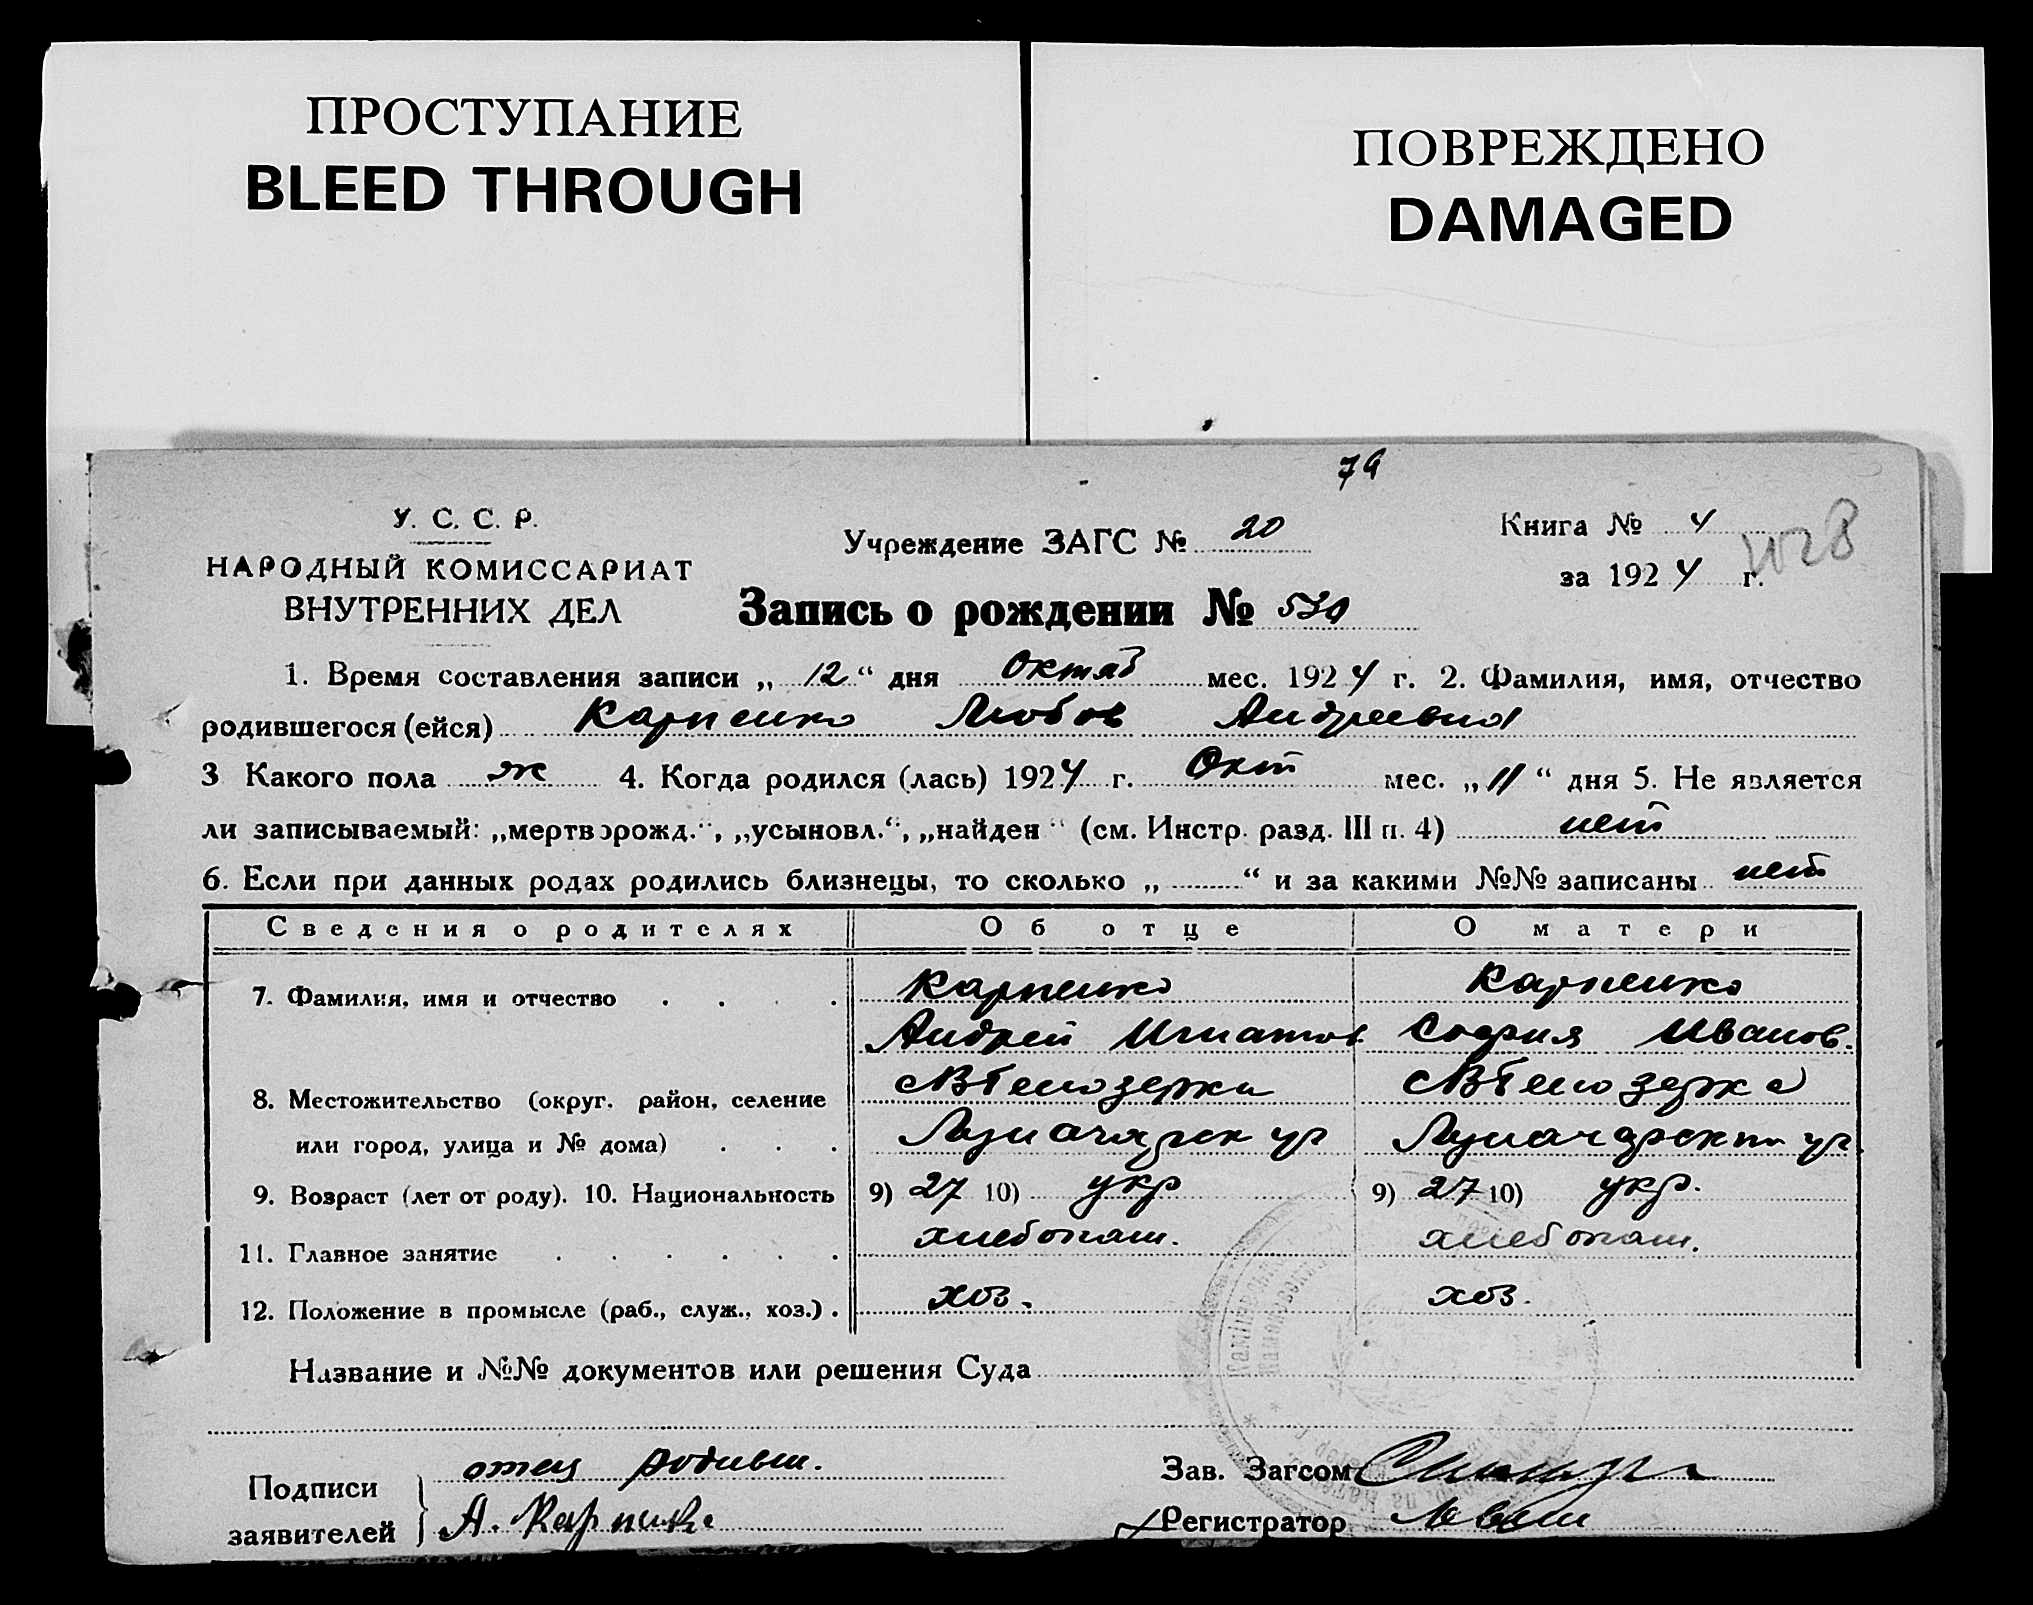 ПРОСТУПАНИЕ
BLEED THROUGH
ПОВРЕЖДЕНО
DAMAGED
79
У. С. С. Р.
НАРОДНЫЙ КОМИССАРИАТ
ВНУТРЕННИХ ДЕЛ
Учреждение ЗАГС № 20
Книга № 4
за 1924 г.
Запись о рождении №
1. Время составления записи „ 12 “ дня Октяб мес. 1924 г. 2. Фамилия, имя, отчество
родившегося (ейся) Карпенко Любов Андреевна
3 Какого пола ж 4. Когда родился (лась) 1924 г. Окт мес. „ 11 “ дня 5. Не является
ли записываемый: „мертворожд.“, „усыновл.“, „найден“ (см. Инстр. разд. III п. 4) нет
6. Если при данных родах родились близнецы, то сколько „ “ и за какими №№ записаны нет
Сведения о родителях Об отце О матери
7. Фамилия, имя и отчество Карпенко Карпенко
Андрей Игнатов. София Иванов.
8. Местожительство (округ, район, селение
или город, улица и № дома) Луначарск ул Луначарск ул
9. Возраст (лет от роду). 10. Национальность 9) 27 10) укр 9) 27 10) укр.
11. Главное занятие хлебопаш. хлебопаш.
12. Положение в промысле (раб., служ., хоз.) . хоз. хоз.
Название и №№ документов или решения Суда
Подписи
заявителей
отец родивш.
А. Карпенко
Зав. Загсом
Регистратор